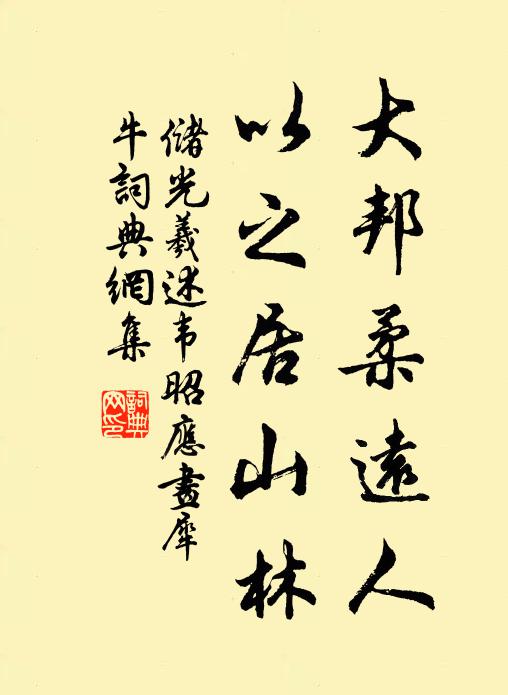 大邦柔遠人
以之居山林
儲光羲述韦昭應畫犀
牛詞典網集
詞典网印